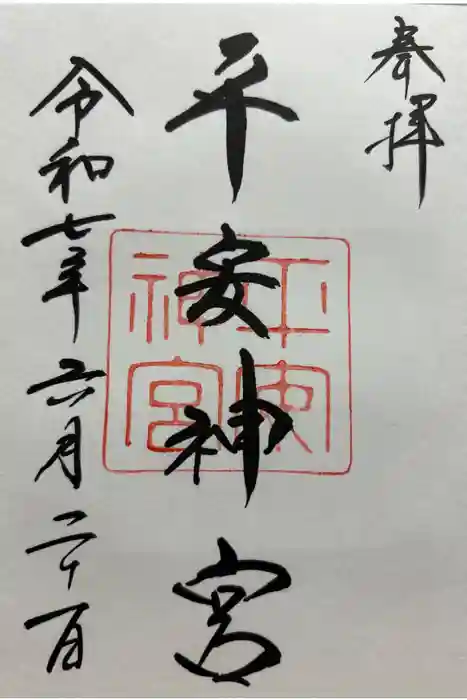 奉拝
平安神宮
平安
神宮
令和七年六月二十一日